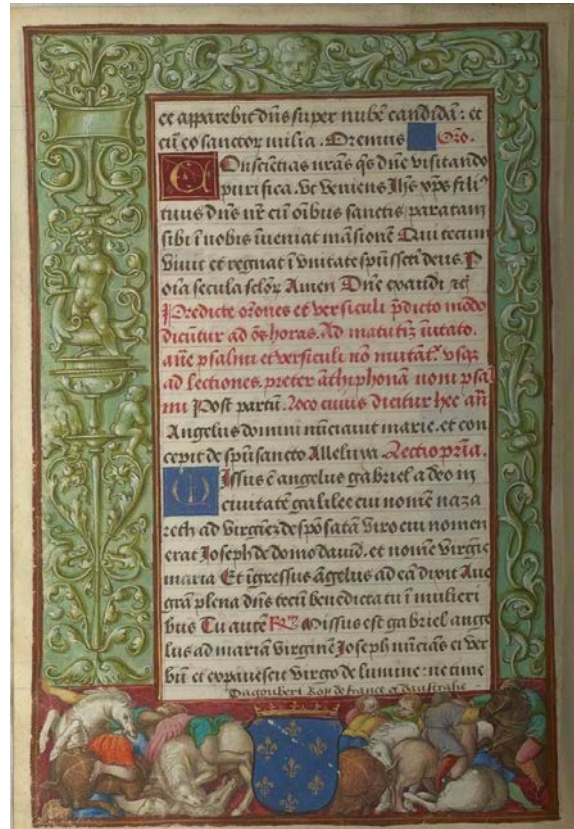 et apparebit dn̄s super nubē candidā: et
cū eo sanctor milia. Oremus Or̄o.
Onscientias nr̄as q̄s dn̄e visitando
purifica. Vt veniens Ihs xp̄s fili⁹
tuus dn̄s nr̄ cū oībus sanctis paratam
sibi ī nobis īueniat māsionē Qui tecum
viuit et regnat ī vnitate spūssc̄ti deus. P
oīa secula sclōꝝ Amen Dn̄e exaudi
Predicte or̄ones et versiculi p̄dicto modo
dicūtur ad ōs horas. Ad matutīꝫ īuitato.
ān̄e psalmi et versiculi nō mutāt᷑ vsqꝫ
ad lectiones. preter āthiphonā noni psal
mi Post partū. Loco cuius dicitur hec an̄
Angelus domini nūciauit marie. et con
cepit de spūsancto Alleluya Lectio prīa.
Missus ē angelus gabriel a deo in
ciuitatē galilee cui nomē naza
reth ad virgīeꝫ despōsatā viro cui nomen
erat Ioseph de domo dauid. et nomē virgīs
maria Et īgressus āgelus ad eā dixit Aue
gr̄a plena dn̄s tecū benedicta tu ī mulieri
bus Tu autē R̄ Missus est gabriel ange
lus ad mariā virginē Ioseph nūciās ei ver
bū et expauescit virgo de lumine: ne time
Dagoubert Roy de france et daustrasie